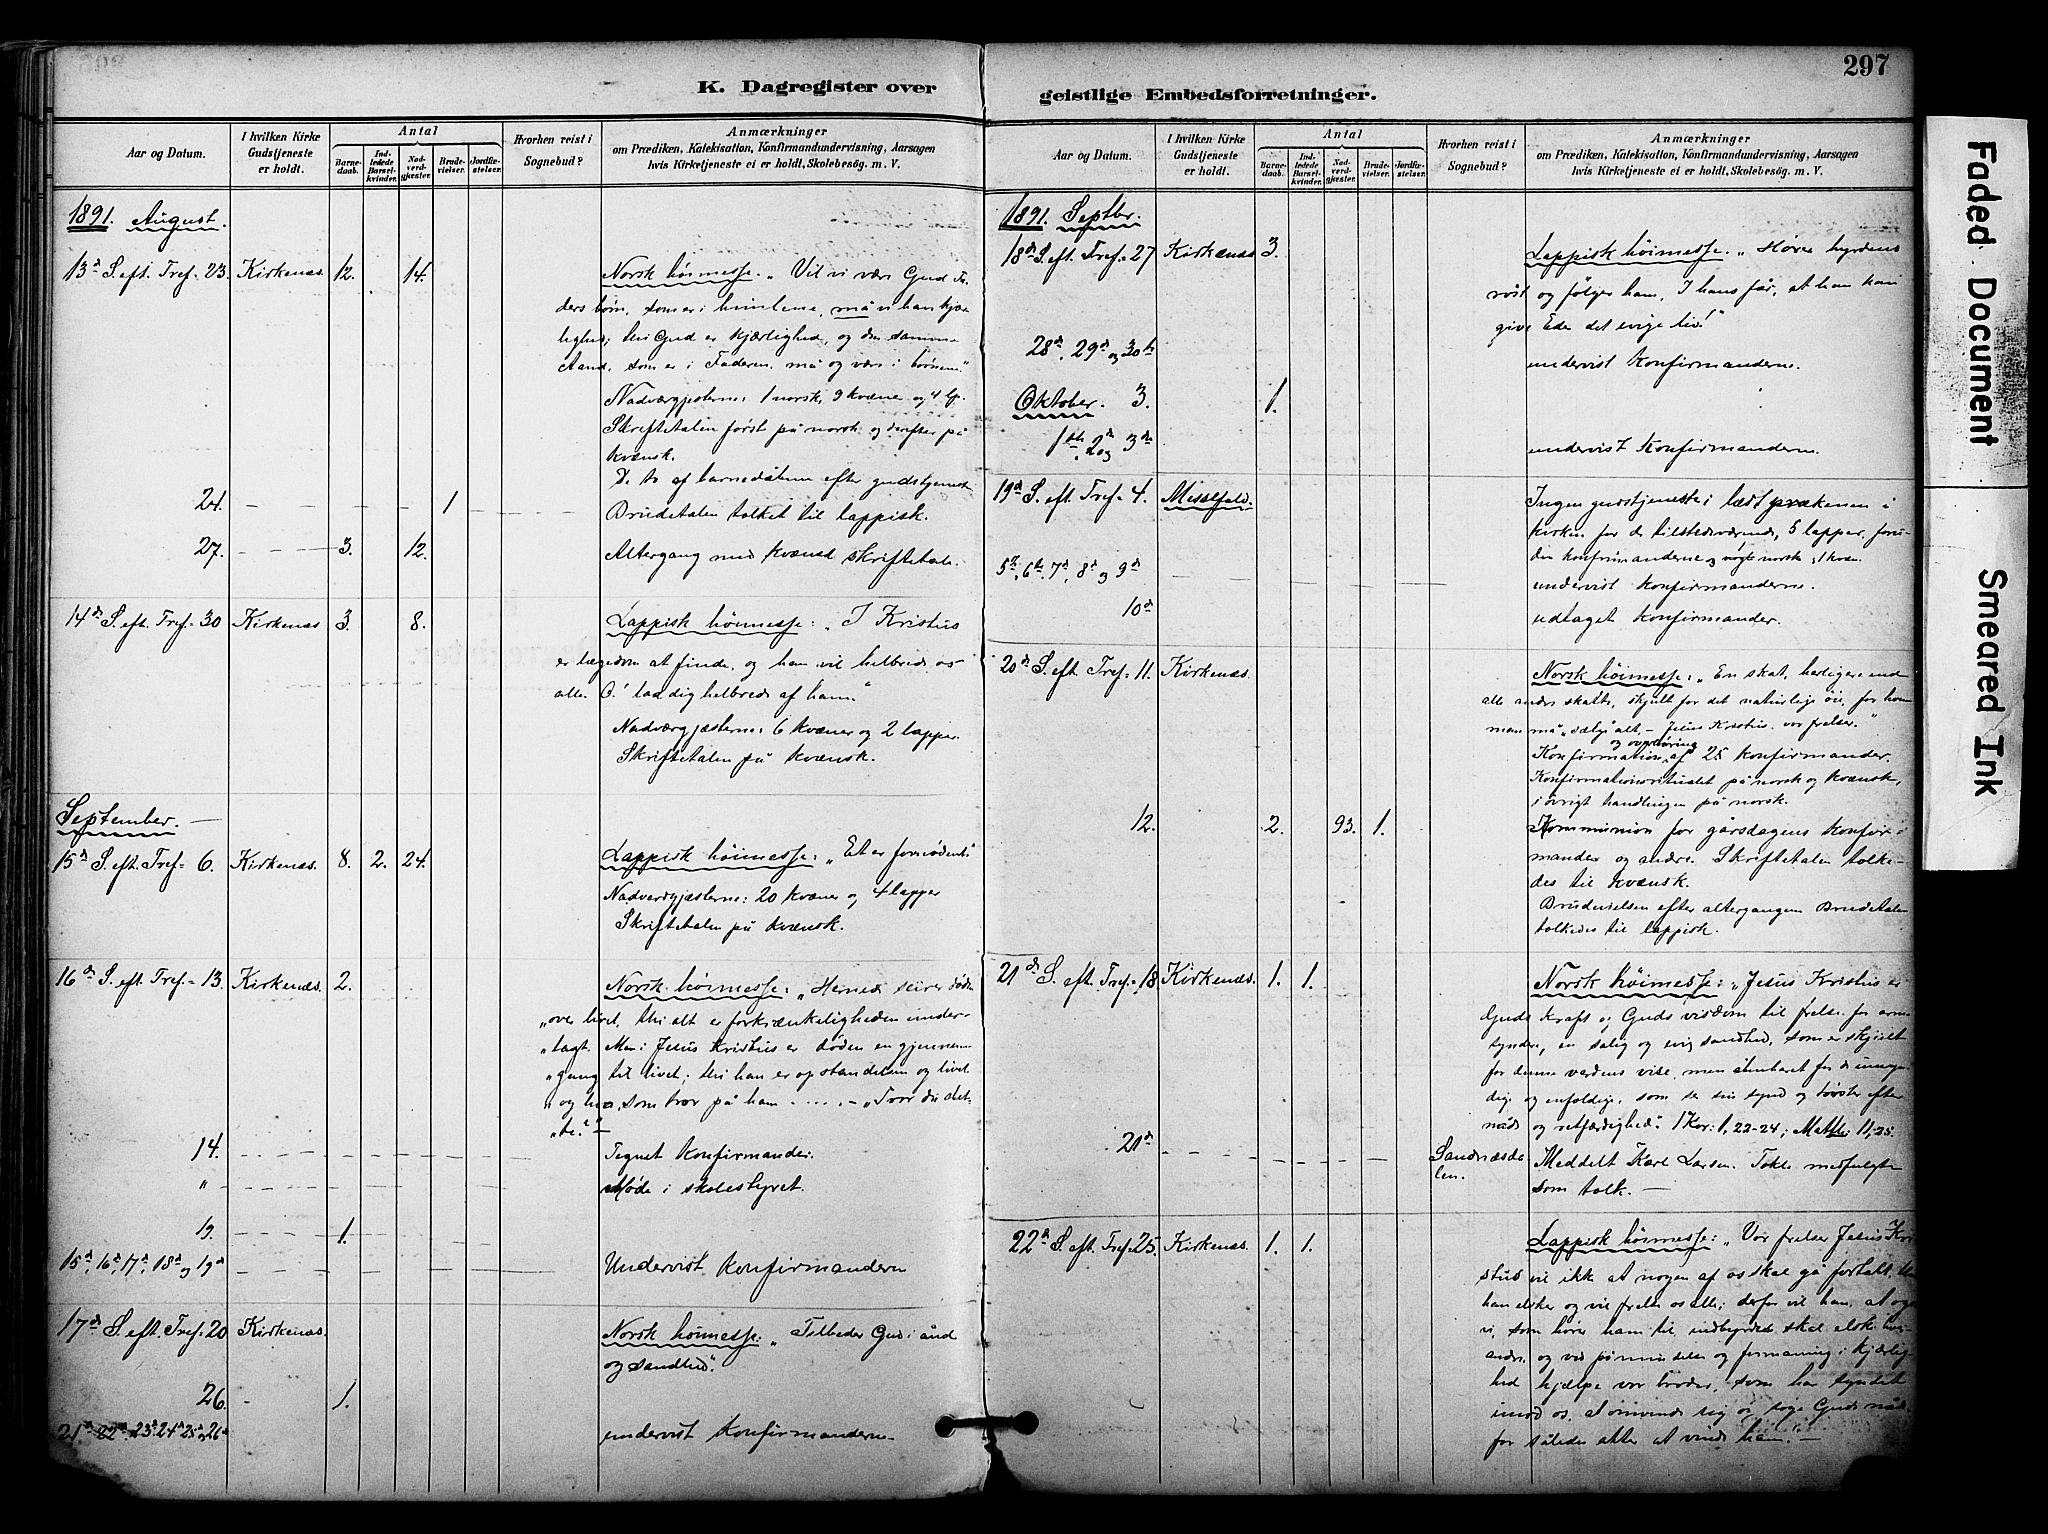 K. Dagregister over
Aar og Datum.
I hvilken Kirke Gudstjeneste er holdt.
Antal
Barnedaab.
Indledede Barselkvinder.
Nadverdgjæster.
Brudevielser.
Jordfæstelser.
Hvorhen reist i Sognebud?
Anmærkninger
om Prædiken, Katekisation, Konfirmandundervisning, Aarsagen
hvis Kirketjeneste ei er holdt, Skolebesög. m. V.
1891. August.
13d S. eft. Tref. 23. Kirkenæs. 12. 14. Norsk høimesse. „Vil vi være Gud Fa-
ders børn, som er i himlene, må vi ha kjær
lighed; thi Gud er kjærlighed, og den samme
Aand, som er i Faderen, må og være i børnene."
Nadværgjæsterne: 1 norsk, 9 kvæne og 4 lp.
Skriftetalen først på norsk og derefter på
kvænsk.
De to af barnedåbene efter gudstjenest
24. 1 Brudetalen tolket til lappisk.
27. 3. 12. Altergang med kvænsk skriftetale.
14d S. eft. Tref. 30 Kirkenæs 3. 8. Lappisk høimesse: „I Kristus
er lægedom at finde, og han vil helbrede os
alle. O! lad dig helbrede af ham."
Nadværgjæsterne: 6 kvæner og 2 lapper.
Skriftetalen på kvænsk.
September.
15d S. eft. Tref. 6. Kirkenæs. 8. 2. 24. Lappisk høimesse: „Et er fornødent"
Nadverdgjæsterne: 20 kvæner og 4 lapper
Skriftetalen på kvænsk.
16d S. eft. Tref. 13. Kirkenæs. 2. Norsk høimesse: „Herned seirer døden
„over livet, thi alt er forkrænkeligheden under-
„lagt. Men i Jesus Kristus er døden en gjennem
„gang til livet; thi han er opstandelsen og livet
„og hver, som tror på ham . . . . – „Tror du det-
„te?" –
14. Tegnet konfirmander.
„ Møde i skolestyret.
19. 1.
15d, 16d, 17d, 18d og 19d Undervist konfirmanderne
17d S. eft. Tref. 20 Kirkenæs. Norsk høimesse: „Tilbeder Gud i ånd
og sandhed".
26. 1.
21d 22d 23d 24d 25d 26d undervist konfirmanderne.
297
geistlige Embedsforretninger.
Aar og Datum.
I hvilken Kirke Gudstjeneste er holdt.
Antal
Barnedaab.
Indledede Barselkvinder.
Nadverdgjæster.
Brudevielser.
Jordfæstelser.
Hvorhen reist i Sognebud?
Anmærkninger
om Prædiken, Katekisation, Konfirmandundervisning, Aarsagen
hvis Kirketjeneste ei er holdt, Skolebesög. m. V.
1891. Septbr.
18d S. eft. Tref. 27 Kirkenæs 3. Lappisk høimesse. „Hører hyrdens
røst og følger ham, I hans får, at han kan
give Eder det evige liv!"
28d, 29d og 30te undervist konfirmanderne.
Oktober. 3. 1.
1ste, 2d og 3de undervist konfirmanderne.
19d S. eft. Tref. 4. Messefald. Ingen gudstjeneste i læst prækenen i
kirken for de tilstedeværende, 5 lapper, foru-
den konfirmanderne og nogle norske, 1 kvæn.
5te, 6te, 7d, 8d og 9d undervist konfirmanderne.
10d udtaget konfirmander.
20d S. eft. Tref. 11. Kirkenæs. Norsk høimesse: „En skat, herligere end
alle andre skatte, skjult for det naturlige øie, for hvem
man må „sælge alt, – Jesus Kristus. vor frelser."
Konfirmation og overhøring af 25 konfirmander.
Konfirmationsritualet på norsk og kvænsk,
i øvrigt handlingen på norsk.
12. 2. 93. 1. Kommunion for gårsdagens konfir-
mander og andre. Skriftetalen tolke-
des til kvænsk.
Brudevielsen efter altergangen. Brudetalen
tolkedes til lappisk.
21d S. eft. Tref. 18. Kirkenæs. 1. 1. Norsk høimesse: „Jesus Kristus er
Guds kraft og Guds visdom til frelse for arme
syndere, en salig og evig sandhed, som er skjult
for denne verdens vise, men åbenbaret for de umyn-
dige og enfoldige, som se sin synd og tørster efter
nåde og retfærdighed." 1 Kor: 1, 22-24; Matth: 11, 25.
21d Sandnæsda-
len. Meddelt Karl Larsen. Tokle medfulgte
som tolk. –
22d S. eft. Tref. 25. Kirkenæs. 1. 1. Lappisk høimesse: „Vor frelser Jesus Kri
stus vil ikke at nogen af os skal gå fortabt, thi
han elsker og vil frelse os alle; derfor vil han, at også
vi, som hører ham til, indbyrdes skal elske hver-
andre, og ved påmindelse og formaning i kjærlig-
hed hjælpe vor broder, som har syndet
imod os, at omvende sig og søge Guds nåde
for således atter at vinde ham." –
Faded Document
Smeared Ink